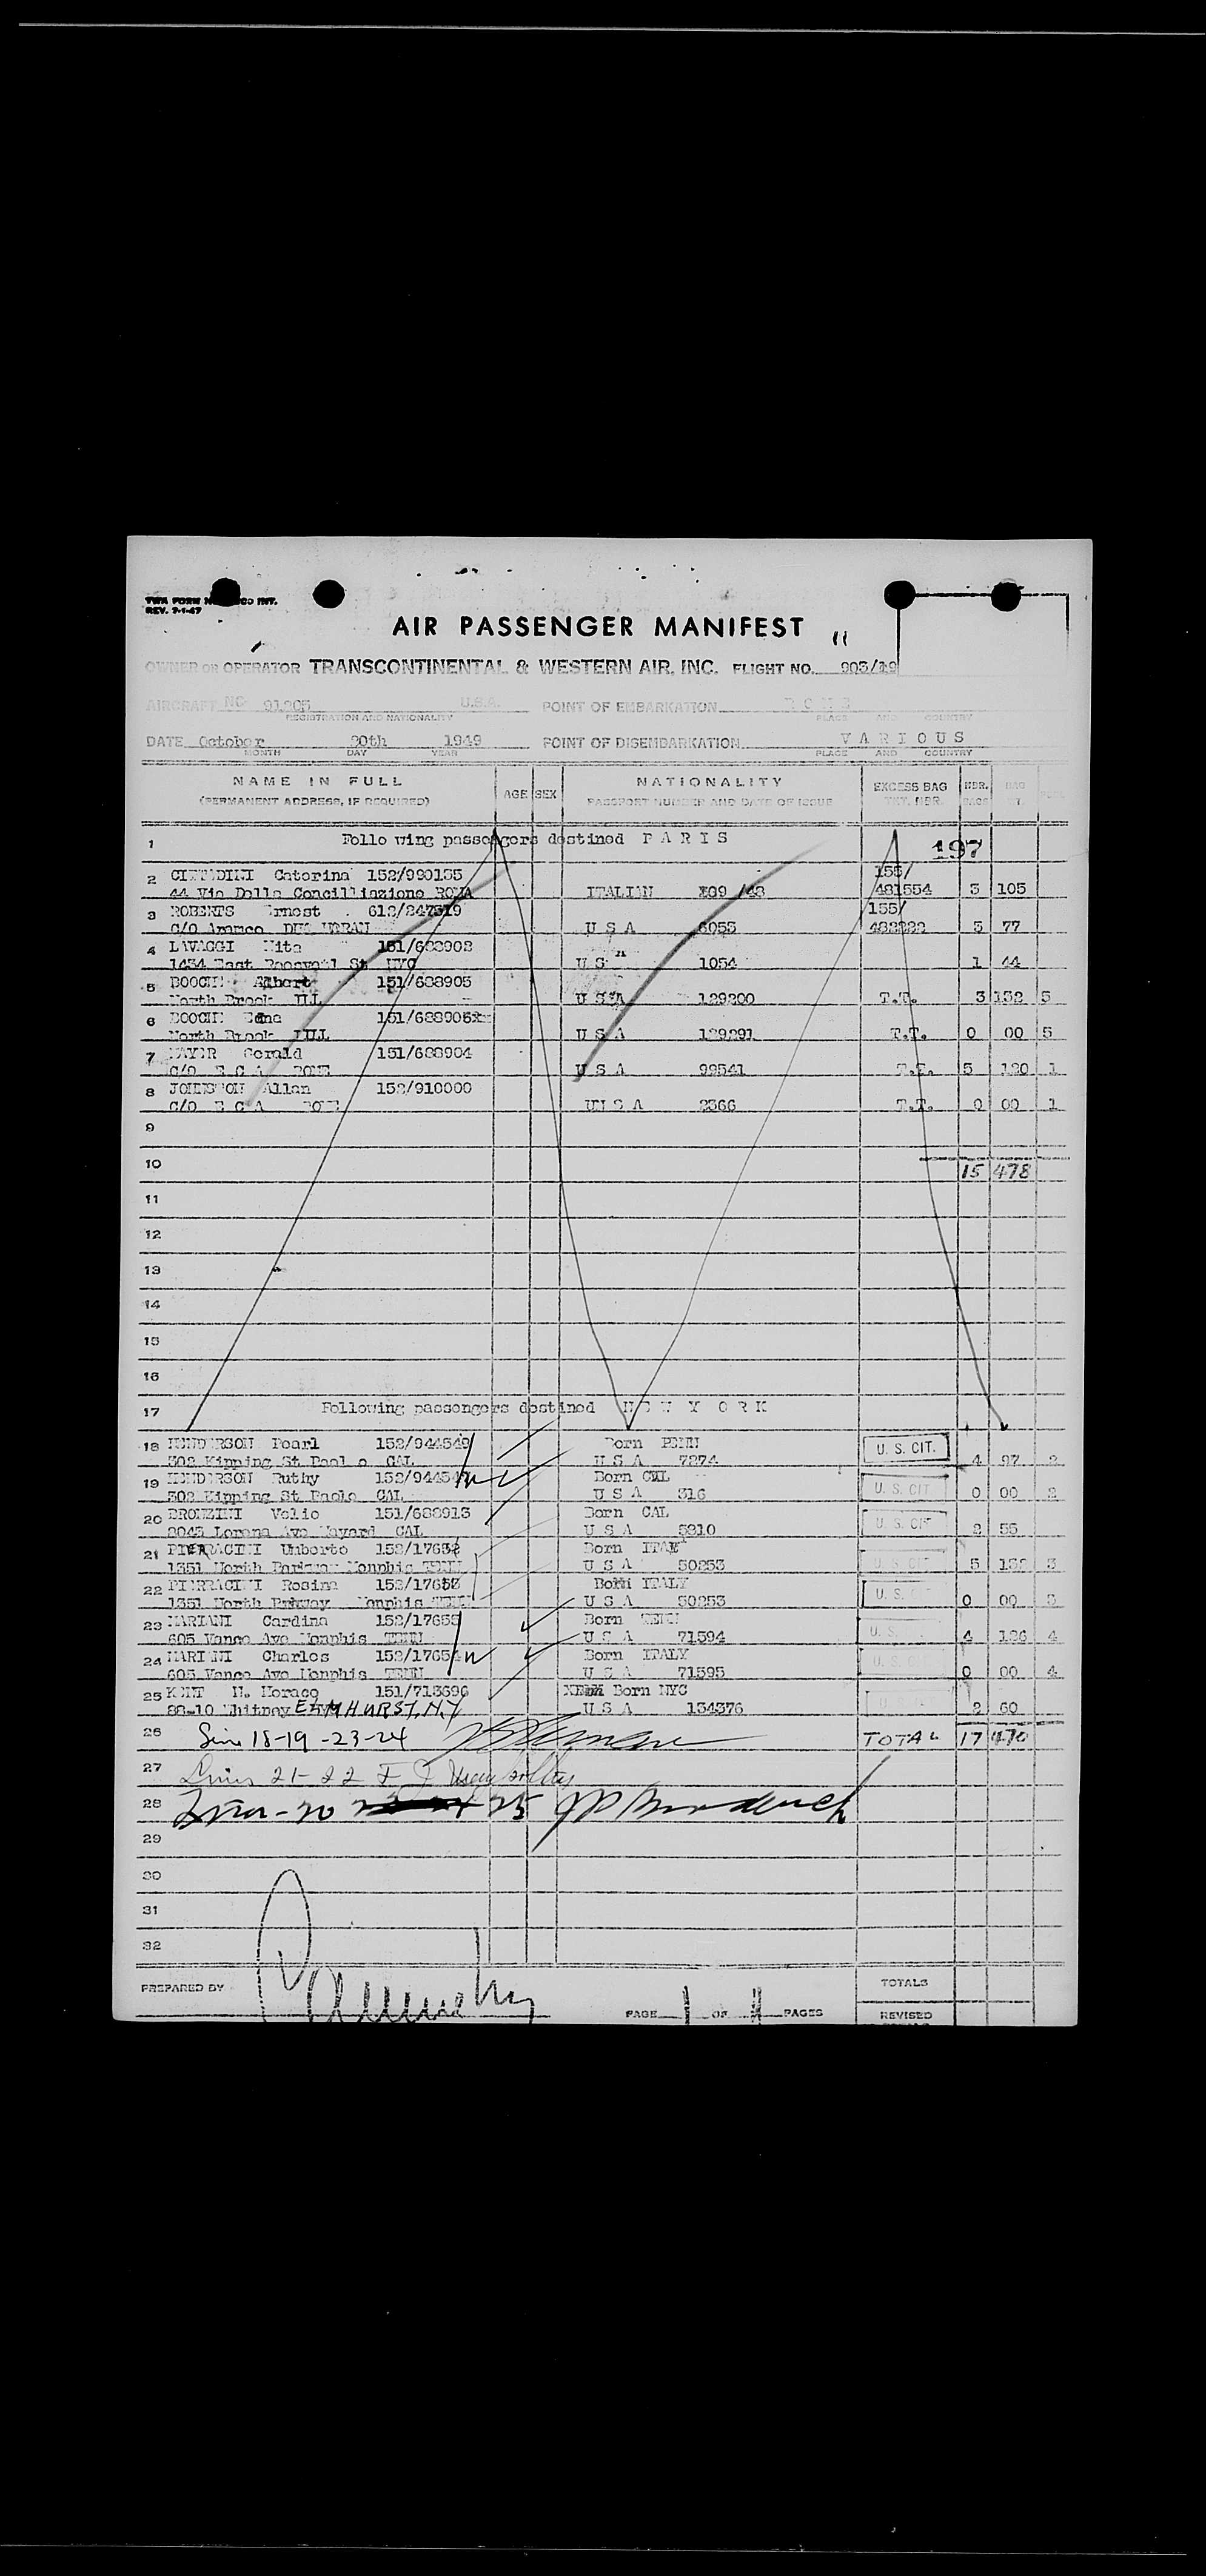 REV. 7-1-47
AIR PASSENGER MANIFEST
OWNER OR OPERATOR TRANSCONTINENTAL & WESTERN AIR, INC. FLIGHT NO. 903/19
AIRCRAFT NC 91205 U.S.A. POINT OF EMBARKATION R O M E
REGISTRATION AND NATIONALITY PLACE AND COUNTRY
DATE October 20th 1949 POINT OF DISEMBARKATION V A R I O U S
MONTH DAY YEAR PLACE AND COUNTRY
NAME IN FULL AGE SEX NATIONALITY EXCESS BAG NBR. BAG
(PERMANENT ADDRESS, IF REQUIRED) PASSPORT NUMBER AND DATE OF ISSUE TKT. NBR. BAGS WT.
1 Follo wing passengers destined P A R I S 197
2 CITTADINI Caterina 152/990155 155/
44 Via Della Concilliazione ROMA ITALIAN /48 481554 3 105
3 ROBERTS Ernest 612/247519 155/
C/O Aramco USA 6055 3 77
4 LAVAGGI Rita 151/688902
1434 East Roosvetl St NYC U S 1054 1 44
5 Albert 151/688905
North Brook ILL U S A 129200 T.T. 3 132 5
6 Edna 151/688906
North Brook ILL U S A 129291 T.T. 0 00 5
7 MAYER Gerald 151/688904
C/O E C A ROME U S A 99541 T.T. 5 120 1
8 JOHNSTON Allan 152/910000
C/O E C A ROME U S A 2366 T.T. 0 00 1
9
10 15 478
11
12
13
14
15
16
17 Following passengers destined N E W Y O R K
18 HENDERSON Pearl 152/944549 Born PENN U. S. CIT.
302 Kipping St CAL U S A 7274 4 97 2
19 HENDERSON Ruthy Born CAL U. S. CIT
302 Kipping St Paolo CAL U S A 316 0 00 2
20 BRONZINI Velio 151/688913 Born CAL U. S. CIT
2045 Lorena Ave Hayard CAL U S A 5310 2 55
21 PIERRACINI Umberto Born U. S. CIT
1351 North Parkway Memphis TENN U S A 50253 5 132 3
22 PIERRACINI Rosina Born ITALY U. S.
1351 North Memphis TENN U S A 50253 0 00 3
23 MARIANI Cardina 152/17655 Born TENN U. S.
605 Vance Ave Memphis TENN U S A 71594 4 126 4
24 MARIANI Charles Born ITALY U. S. CIT
605 Vance Ave Memphis TENN U S A 71595 0 00 4
25 KENT H. Horace 151/713696 Born NYC U. S.
88-10 Whitney ELMHURST, N.Y. U S A 134376 2 60
26 18-19-23-24 TOTAL 17 470
27 21-22
28 20 25
29
30
31
32
PREPARED BY PAGE 1 OF 1 PAGES TOTALS
REVISED